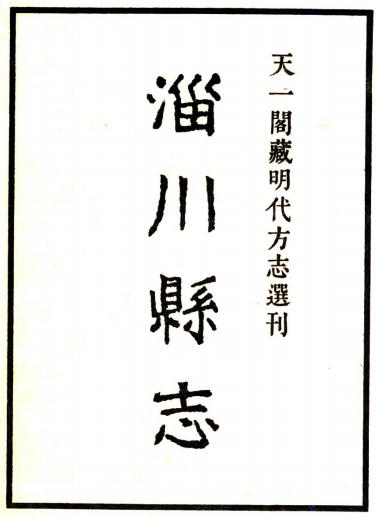 天一閣藏明代方志選刊
淄川縣志